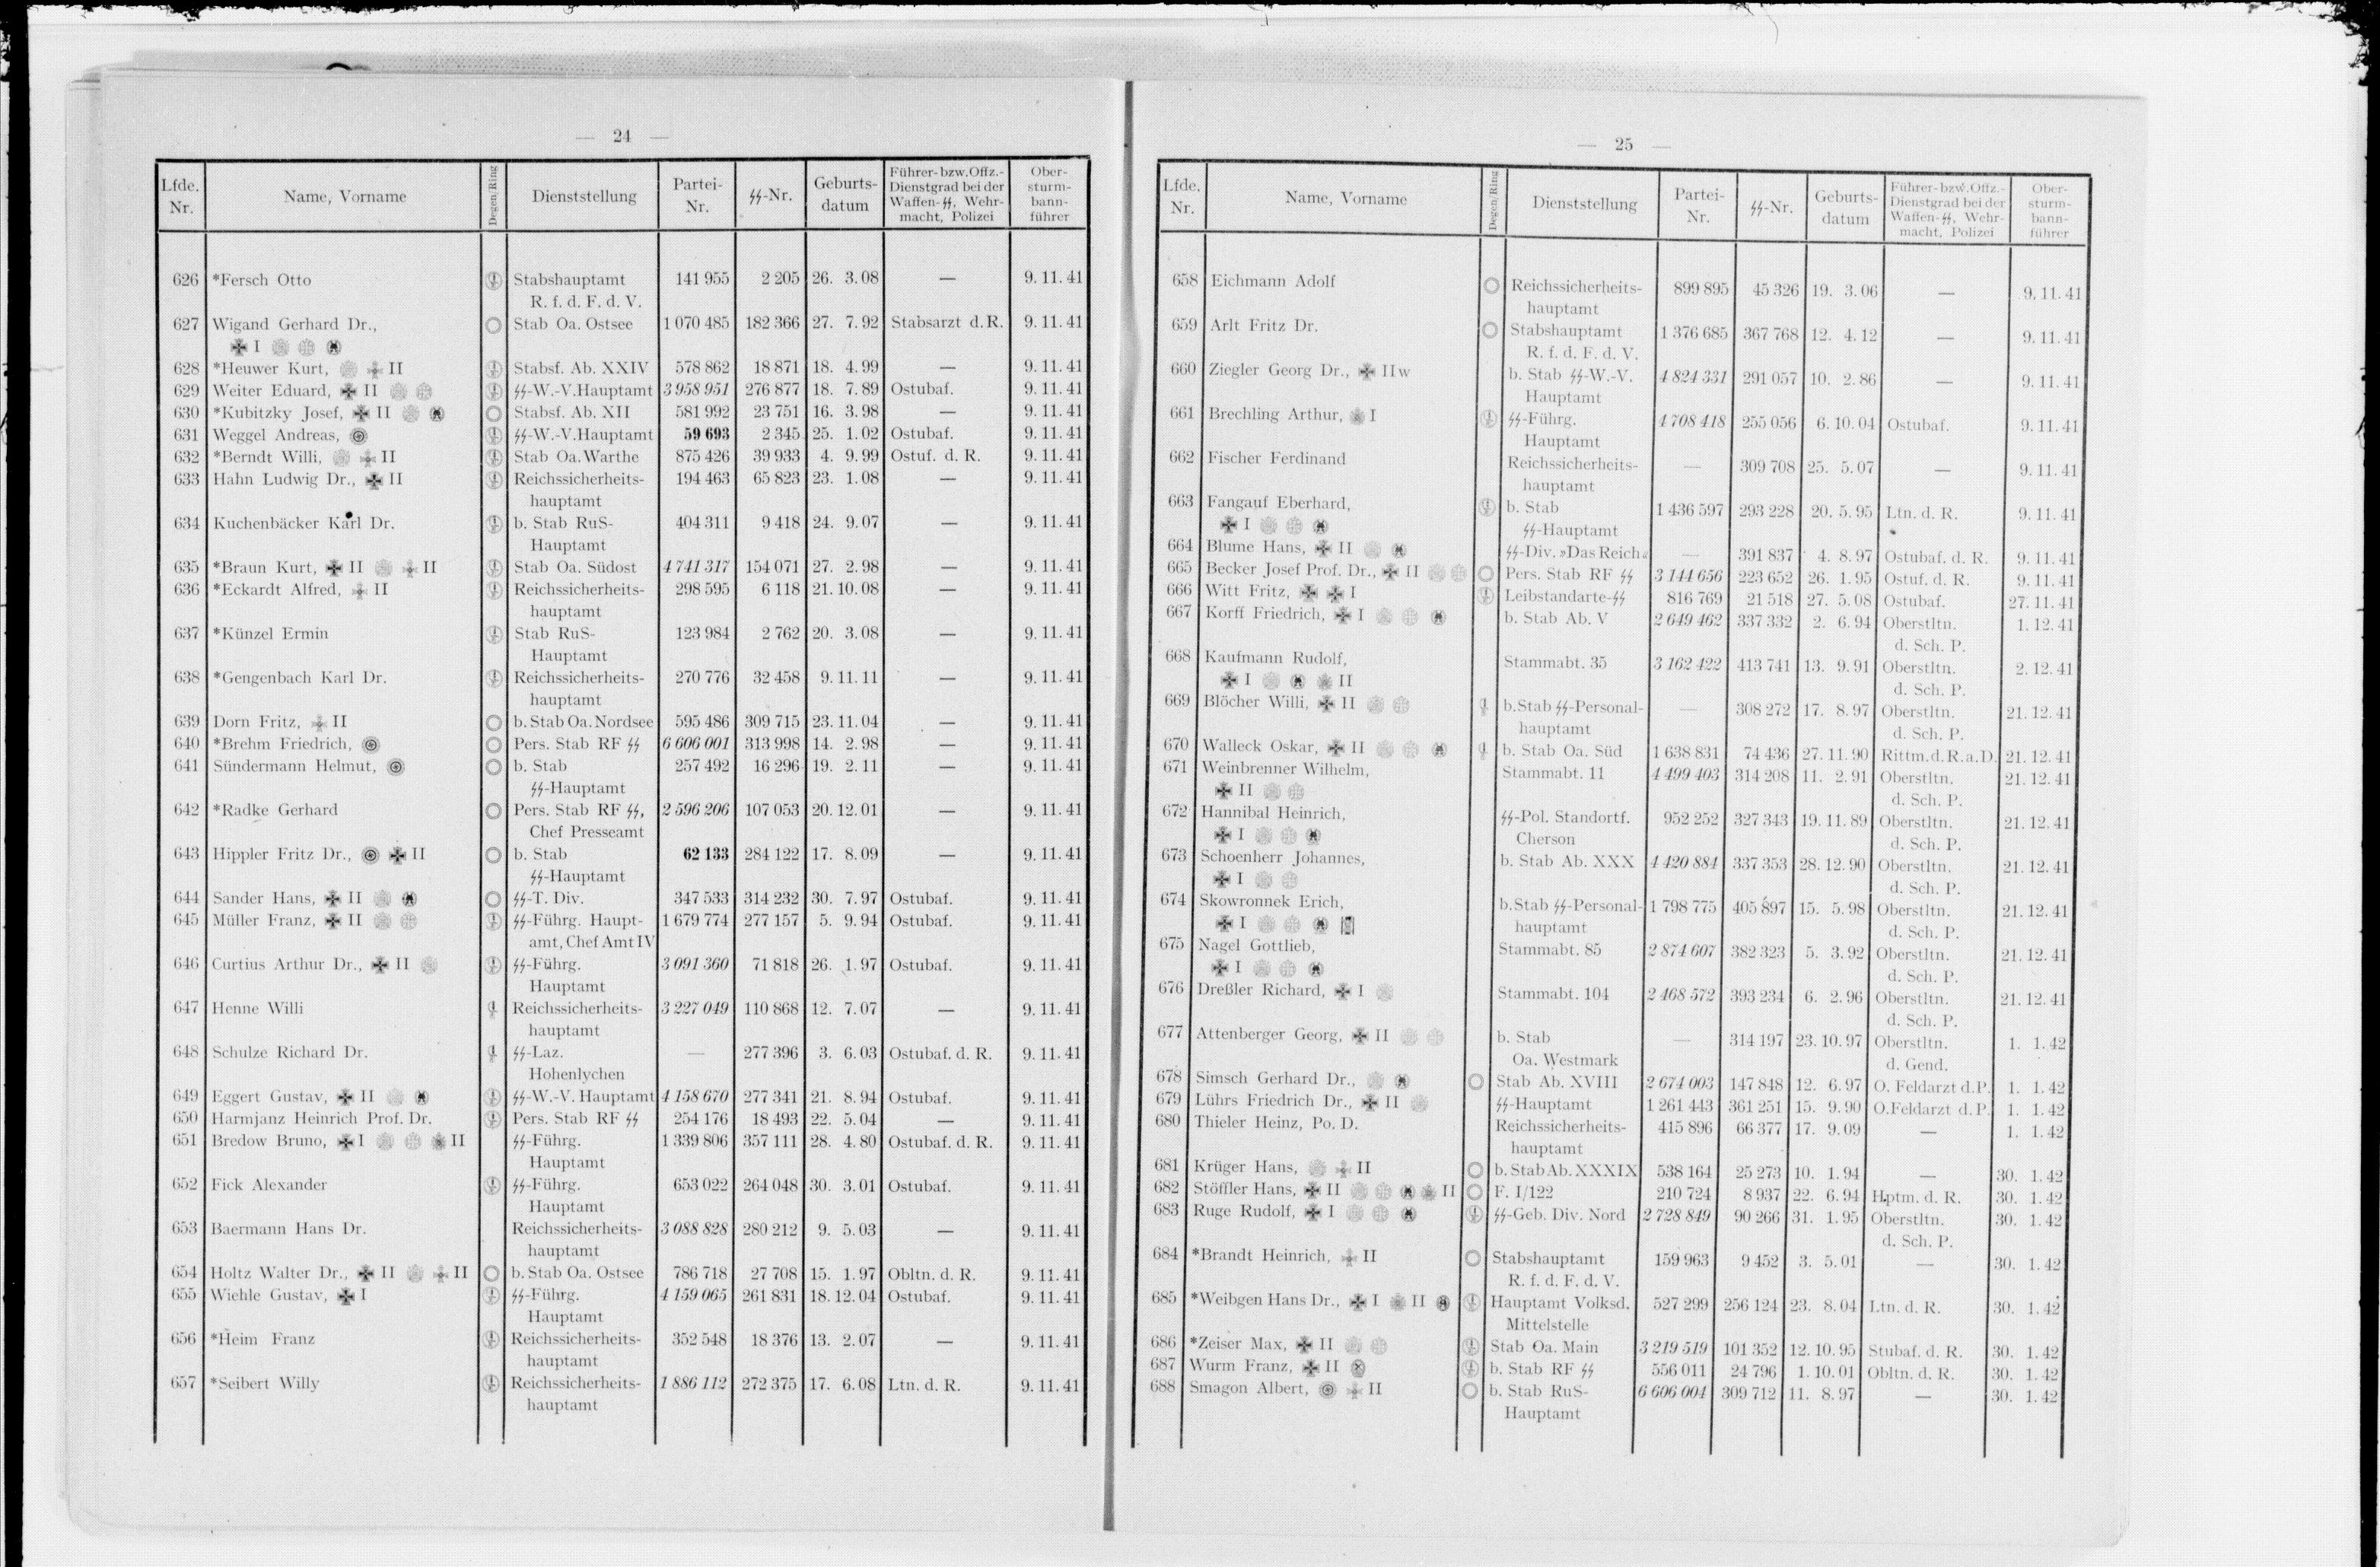 — 24 —
Lfde. Nr. Name, Vorname Degen/Ring Dienststellung Partei-Nr. ϟϟ-Nr. Geburts-datum Führer- bzw. Offz.-Dienstgrad bei der Waffen-ϟϟ, Wehr-macht, Polizei Ober-sturm-bann-führer
626 *Fersch Otto Stabshauptamt 141 955 2 205 26. 3. 08 — 9. 11. 41
R. f. d. F. d. V.
627 Wigand Gerhard Dr., Stab Oa. Ostsee 1 070 485 182 366 27. 7. 92 Stabsarzt d. R. 9. 11. 41
I
628 *Heuwer Kurt, II Stabsf. Ab. XXIV 578 862 18 871 18. 4. 99 — 9. 11. 41
629 Weiter Eduard, II ϟϟ-W.-V.Hauptamt 3 958 951 276 877 18. 7. 89 Ostubaf. 9. 11. 41
630 *Kubitzky Josef, II Stabsf. Ab. XII 581 992 23 751 16. 3. 98 — 9. 11. 41
631 Weggel Andreas, ϟϟ-W.-V.Hauptamt 59 693 2 345 25. 1. 02 Ostubaf. 9. 11. 41
632 *Berndt Willi, II Stab Oa. Warthe 875 426 39 933 4. 9. 99 Ostuf. d. R. 9. 11. 41
633 Hahn Ludwig Dr., II Reichssicherheits- 194 463 65 823 23. 1. 08 — 9. 11. 41
hauptamt
634 Kuchenbäcker Karl Dr. b. Stab RuS- 404 311 9 418 24. 9. 07 — 9. 11. 41
Hauptamt
635 *Braun Kurt, II II Stab Oa. Südost 4 741 317 154 071 27. 2. 98 — 9. 11. 41
636 *Eckardt Alfred, II Reichssicherheits- 298 595 6 118 21. 10. 08 — 9. 11. 41
hauptamt
637 *Künzel Ermin Stab RuS- 123 984 2 762 20. 3. 08 — 9. 11. 41
Hauptamt
638 *Gengenbach Karl Dr. Reichssicherheits- 270 776 32 458 9. 11. 11 — 9. 11. 41
hauptamt
639 Dorn Fritz, II b. Stab Oa. Nordsee 595 486 309 715 23. 11. 04 — 9. 11. 41
640 *Brehm Friedrich, Pers. Stab RF ϟϟ 6 606 001 313 998 14. 2. 98 — 9. 11. 41
641 Sündermann Helmut, b. Stab 257 492 16 296 19. 2. 11 — 9. 11. 41
ϟϟ-Hauptamt
642 *Radke Gerhard Pers. Stab RF ϟϟ, 2 596 206 107 053 20. 12. 01 — 9. 11. 41
Chef Presseamt
643 Hippler Fritz Dr., II b. Stab 62 133 284 122 17. 8. 09 — 9. 11. 41
ϟϟ-Hauptamt
644 Sander Hans, II ϟϟ-T. Div. 347 533 314 232 30. 7. 97 Ostubaf. 9. 11. 41
645 Müller Franz, II ϟϟ-Führg. Haupt- 1 679 774 277 157 5. 9. 94 Ostubaf. 9. 11. 41
amt, Chef Amt IV
646 Curtius Arthur Dr., II ϟϟ-Führg. 3 091 360 71 818 26. 1. 97 Ostubaf. 9. 11. 41
Hauptamt
647 Henne Willi Reichssicherheits- 3 227 049 110 868 12. 7. 07 — 9. 11. 41
hauptamt
648 Schulze Richard Dr. ϟϟ-Laz. — 277 396 3. 6. 03 Ostubaf. d. R. 9. 11. 41
Hohenlychen
649 Eggert Gustav, II ϟϟ-W.-V. Hauptamt 4 158 670 277 341 21. 8. 94 Ostubaf. 9. 11. 41
650 Harmjanz Heinrich Prof. Dr. Pers. Stab RF ϟϟ 254 176 18 493 22. 5. 04 — 9. 11. 41
651 Bredow Bruno, I II ϟϟ-Führg. 1 339 806 357 111 28. 4. 80 Ostubaf. d. R. 9. 11. 41
Hauptamt
652 Fick Alexander ϟϟ-Führg. 653 022 264 048 30. 3. 01 Ostubaf. 9. 11. 41
Hauptamt
653 Baermann Hans Dr. Reichssicherheits- 3 088 828 280 212 9. 5. 03 — 9. 11. 41
hauptamt
654 Holtz Walter Dr., II II b. Stab Oa. Ostsee 786 718 27 708 15. 1. 97 Obltn. d. R. 9. 11. 41
655 Wiehle Gustav, I ϟϟ-Führg. 4 159 065 261 831 18. 12. 04 Ostubaf. 9. 11. 41
Hauptamt
656 *Heim Franz Reichssicherheits- 352 548 18 376 13. 2. 07 — 9. 11. 41
hauptamt
657 *Seibert Willy Reichssicherheits- 1 886 112 272 375 17. 6. 08 Ltn. d. R. 9. 11. 41
hauptamt
— 25 —
Lfde. Nr. Name, Vorname Degen/Ring Dienststellung Partei-Nr. ϟϟ-Nr. Geburts-datum Führer- bzw. Offz.-Dienstgrad bei der Waffen-ϟϟ, Wehr-macht, Polizei Ober-sturm-bann-führer
658 Eichmann Adolf Reichssicherheits- 899 895 45 326 19. 3. 06 — 9. 11. 41
hauptamt
659 Arlt Fritz Dr. Stabshauptamt 1 376 685 367 768 12. 4. 12 — 9. 11. 41
R. f. d. F. d. V.
660 Ziegler Georg Dr., IIw b. Stab ϟϟ-W.-V. 4 824 331 291 057 10. 2. 86 — 9. 11. 41
Hauptamt
661 Brechling Arthur, I ϟϟ-Führg. 4 708 418 255 056 6. 10. 04 Ostubaf. 9. 11. 41
Hauptamt
662 Fischer Ferdinand Reichssicherheits- — 309 708 25. 5. 07 — 9. 11. 41
hauptamt
663 Fangauf Eberhard, b. Stab 1 436 597 293 228 20. 5. 95 Ltn. d. R. 9. 11. 41
I ϟϟ-Hauptamt
664 Blume Hans, II ϟϟ-Div. »Das Reich« — 391 837 4. 8. 97 Ostubaf. d. R. 9. 11. 41
665 Becker Josef Prof. Dr., II Pers. Stab RF ϟϟ 3 144 656 223 652 26. 1. 95 Ostuf. d. R. 9. 11. 41
666 Witt Fritz, I Leibstandarte-ϟϟ 816 769 21 518 27. 5. 08 Ostubaf. 27. 11. 41
667 Korff Friedrich, I b. Stab Ab. V 2 649 462 337 332 2. 6. 94 Oberstltn. 1. 12. 41
d. Sch. P.
668 Kaufmann Rudolf, Stammabt. 35 3 162 422 413 741 13. 9. 91 Oberstltn. 2. 12. 41
I II d. Sch. P.
669 Blöcher Willi, II b. Stab ϟϟ-Personal- — 308 272 17. 8. 97 Oberstltn. 21. 12. 41
hauptamt d. Sch. P.
670 Walleck Oskar, II b. Stab Oa. Süd 1 638 831 74 436 27. 11. 90 Rittm. d. R. a. D. 21. 12. 41
671 Weinbrenner Wilhelm, Stammabt. 11 4 499 403 314 208 11. 2. 91 Oberstltn. 21. 12. 41
II d. Sch. P.
672 Hannibal Heinrich, ϟϟ-Pol. Standortf. 952 252 327 343 19. 11. 89 Oberstltn. 21. 12. 41
I Cherson d. Sch. P.
673 Schoenherr Johannes, b. Stab Ab. XXX 4 420 884 337 353 28. 12. 90 Oberstltn. 21. 12. 41
I d. Sch. P.
674 Skowronnek Erich, b. Stab ϟϟ-Personal- 1 798 775 405 897 15. 5. 98 Oberstltn. 21. 12. 41
I hauptamt d. Sch. P.
675 Nagel Gottlieb, Stammabt. 85 2 874 607 382 323 5. 3. 92 Oberstltn. 21. 12. 41
I d. Sch. P.
676 Dreßler Richard, I Stammabt. 104 2 468 572 393 234 6. 2. 96 Oberstltn. 21. 12. 41
d. Sch. P.
677 Attenberger Georg, II b. Stab — 314 197 23. 10. 97 Oberstltn. 1. 1. 42
Oa. Westmark d. Gend.
678 Simsch Gerhard Dr., Stab Ab. XVIII 2 674 003 147 848 12. 6. 97 O. Feldarzt d. P. 1. 1. 42
679 Lührs Friedrich Dr., II ϟϟ-Hauptamt 1 261 443 361 251 15. 9. 90 O. Feldarzt d. P. 1. 1. 42
680 Thieler Heinz, Po. D. Reichssicherheits- 415 896 66 377 17. 9. 09 — 1. 1. 42
hauptamt
681 Krüger Hans, II b. Stab Ab. XXXIX 538 164 25 273 10. 1. 94 — 30. 1. 42
682 Stöffler Hans, II II F. I/122 210 724 8 937 22. 6. 94 Hptm. d. R. 30. 1. 42
683 Ruge Rudolf, I ϟϟ-Geb. Div. Nord 2 728 849 90 266 31. 1. 95 Oberstltn. 30. 1. 42
d. Sch. P.
684 *Brandt Heinrich, II Stabshauptamt 159 963 9 452 3. 5. 01 — 30. 1. 42
R. f. d. F. d. V.
685 *Weibgen Hans Dr., I II Hauptamt Volksd. 527 299 256 124 23. 8. 04 Ltn. d. R. 30. 1. 42
Mittelstelle
686 *Zeiser Max, II Stab Oa. Main 3 219 519 101 352 12. 10. 95 Stubaf. d. R. 30. 1. 42
687 Wurm Franz, II b. Stab RF ϟϟ 556 011 24 796 1. 10. 01 Obltn. d. R. 30. 1. 42
688 Smagon Albert, II b. Stab RuS- 6 606 004 309 712 11. 8. 97 — 30. 1. 42
Hauptamt